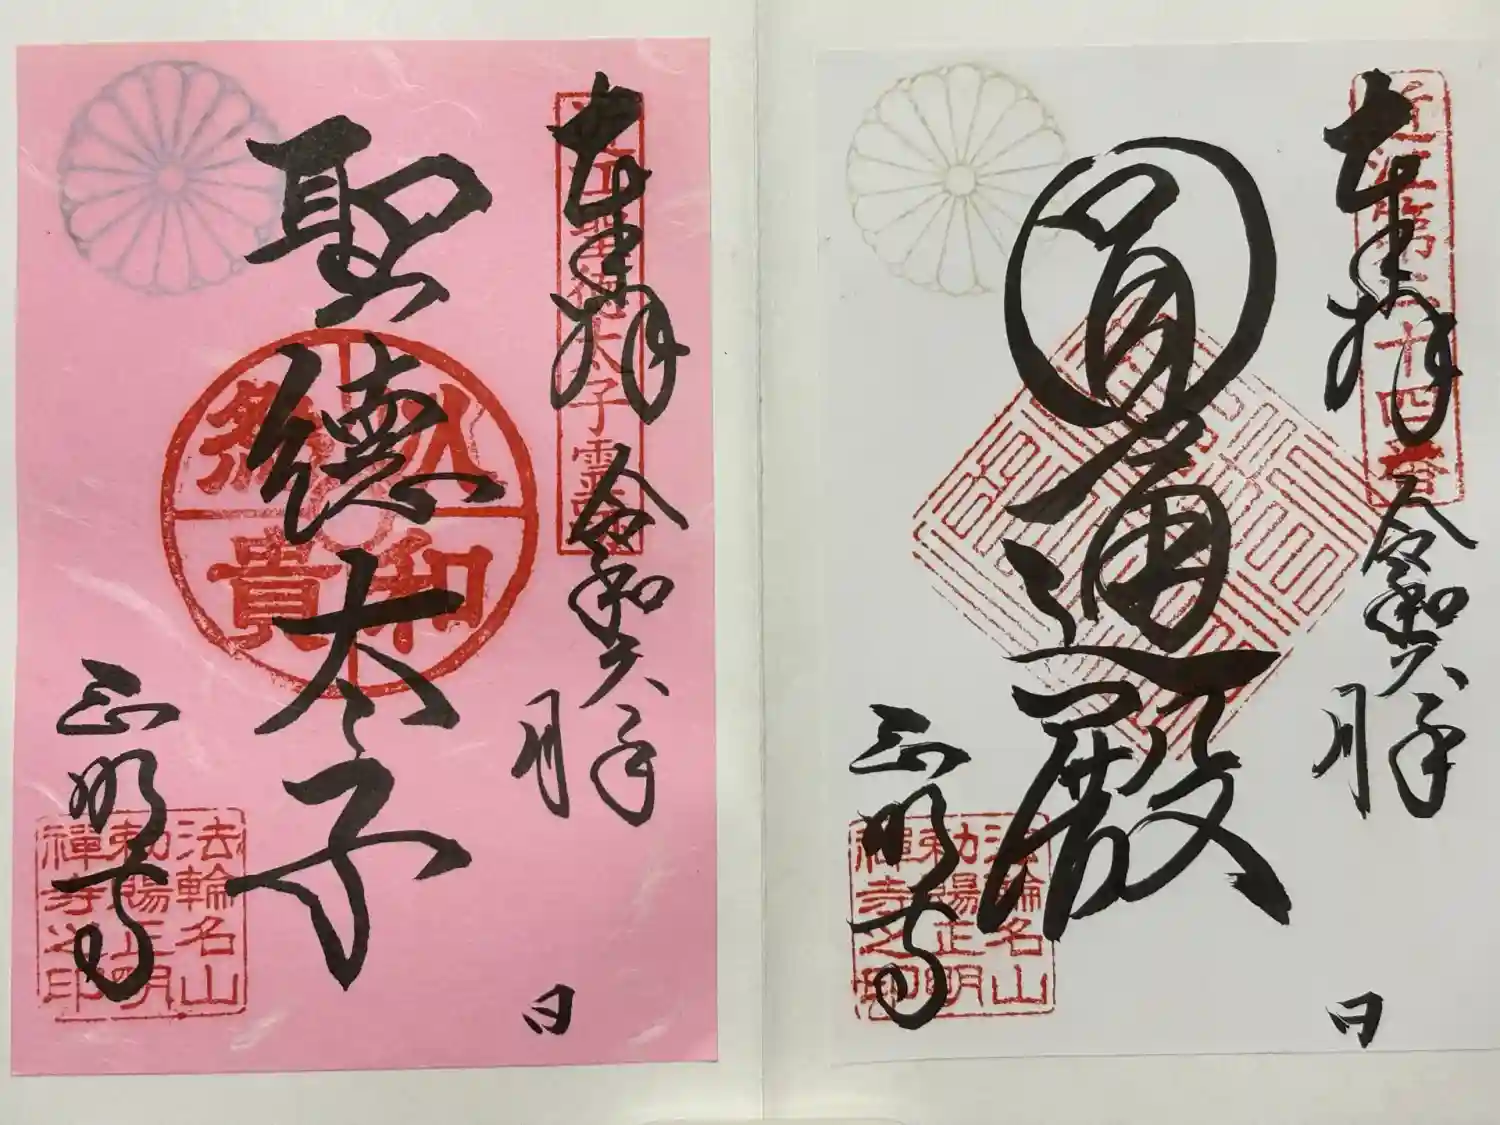 奉拝
近江第二十四番
令和六年
月
日
圓通殿
正明寺
法輪名山
勅賜正明
禪寺之印
奉拝
近江聖徳太子霊蹟
令和六年
月
日
聖徳太子
以和爲貴
正明寺
法輪名山
勅賜正明
禪寺之印